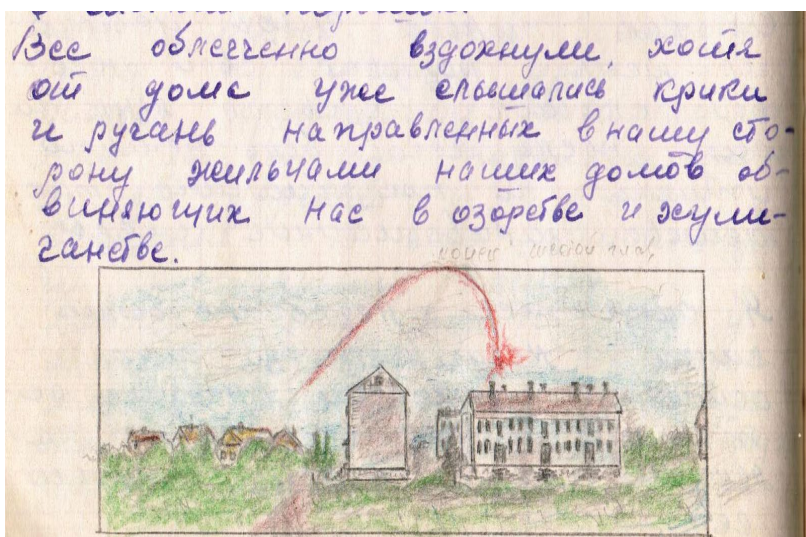 Все облегченно вздохнули, хотя
от дома уже слышались крики
и ругань направленных в нашу сто-
рону жильцами наших домов об-
виняющих нас в озорстве и хули-
ганстве.
конец шестой глав